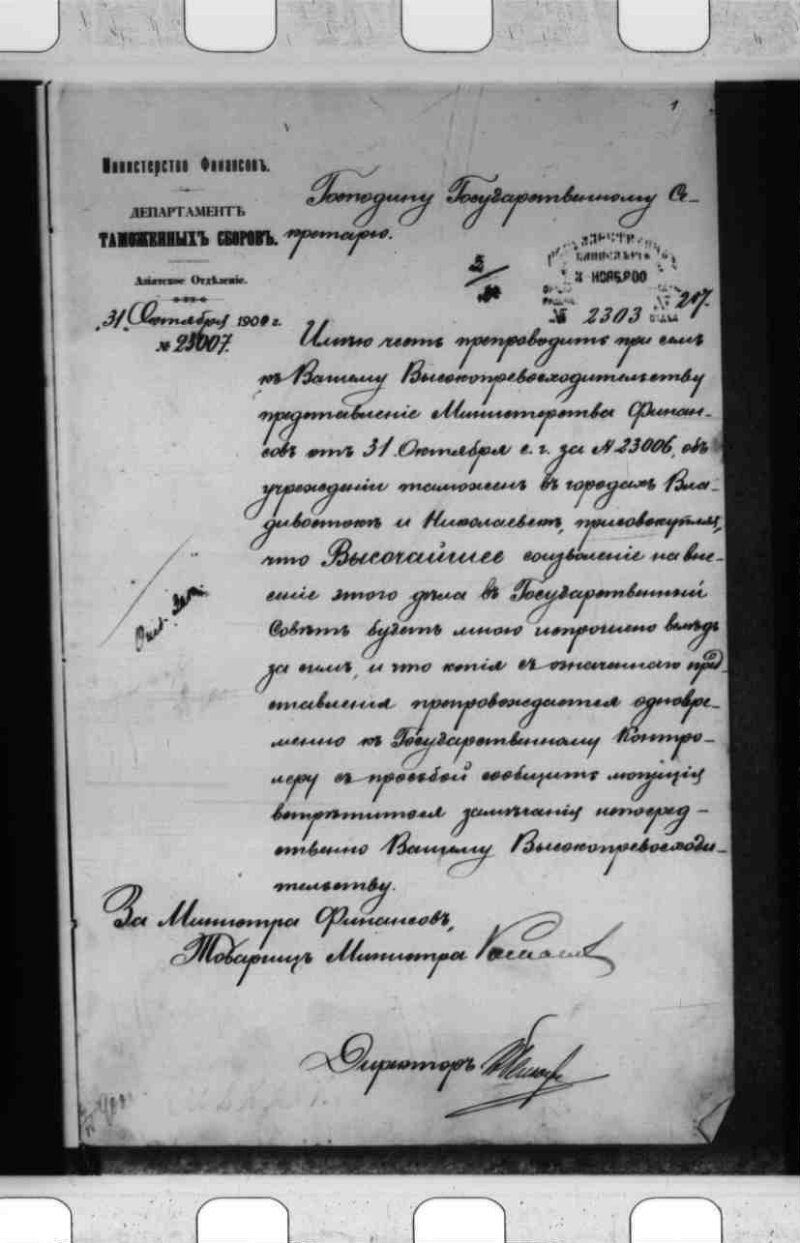 1
Министерство Финансовъ.
ДЕПАРТАМЕНТЪ
ТАМОЖЕННЫХЪ СБОРОВЪ.
Азіатское Отдѣленіе.
31 Октября 1900 г.
№ 23007.
Господину Государственному Се-
кретарю.
2 НОЯБР 900
№ 2303
217.
Имѣю честь препроводить при семъ
къ Вашему Высокопревосходительству
представленіе Министерства Финан-
совъ отъ 31 Октября с. г. за № 23006, объ
учрежденіи таможенъ въ городахъ Вла-
дивостокѣ и Николаевскѣ, присовокупляя,
что Высочайшее соизволеніе на вне-
сеніе этого дѣла въ Государственный
Совѣтъ будетъ мною испрошено вслѣдъ
за симъ, и что копія съ означеннаго пред-
ставленія препровождается одновре-
менно къ Государственному Контро-
леру съ просьбой сообщить могущія
встрѣтиться замѣчанія непосред-
ственно Вашему Высокопревосходи-
тельству.
За Министра Финансовъ,
Товарищъ Министра
Директоръ